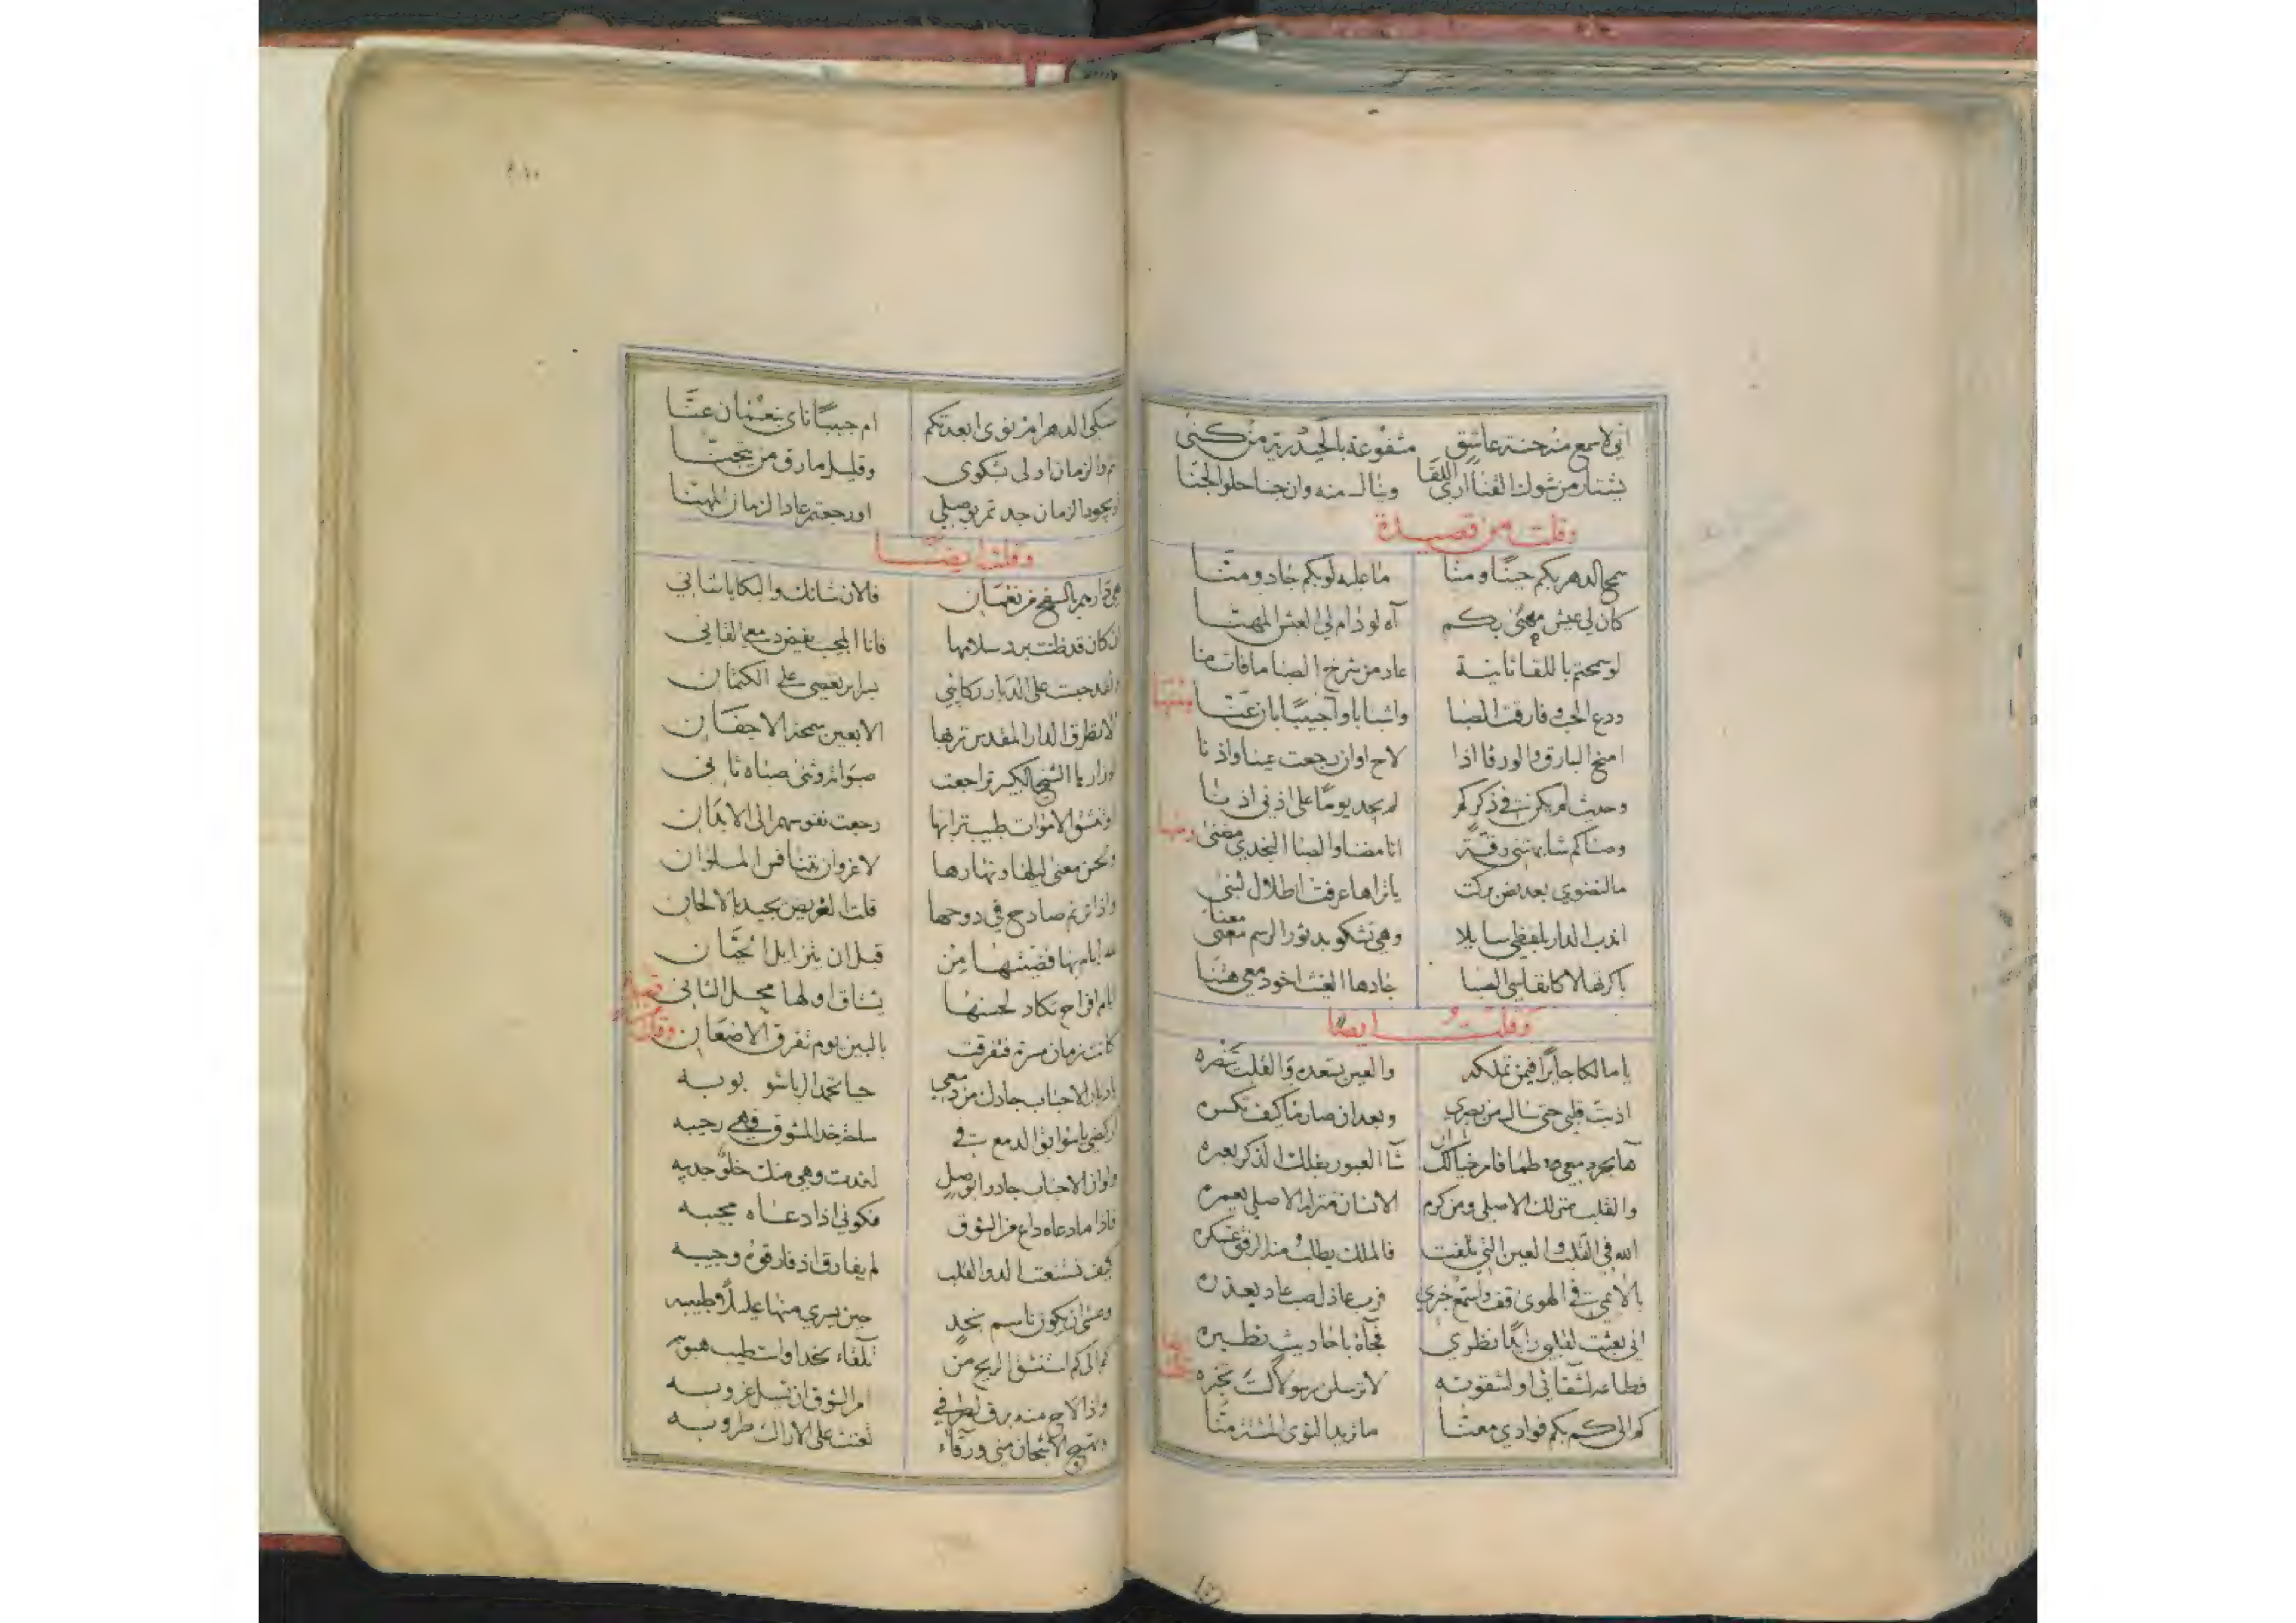 اني لاسمع منه رحنة عاشق مشفوعة بالحيدرية من كنى
يشتار من شوك القنا ارى اللقا وينال منه وان جنا حلو الجنا
وقلت من قصيدة
سمح الدهر بكم حينا ومنا ما عليه لو بكم جاد ومنا
كان لي عيش مهنى بكم آه لو دام لي العيش المهنا
لو سمحتم باللقا ثانية عاد من شرخ الصبا ما فات منا
ودع الحي وفارقت الصبا واشبابا وا حبيبا بان عنا
ومنها
امنح البارق والورقا اذا لاح او ان رجعت عينا واذنا
وحديث لم يكن في ذكركم لم يجد يوما على اذني اذنا
وصباكم شابهتني رقة انا مضنا والصبا النجدي مضنى
ومنها
ما لنضوي بعد نص بركت يا تراها عرفت اطلال لبنى
اندب الدار بلفظي سايلا وهي تشكو بدثور الرسم معنى
باكرتها لا كانفاسي الصبا جادها الغيث اخو دمعي هتنا
وقلت ايضا
يا مالكا جايرا فيمن تملكه والعين تسعده والقلب تنصره
اذبت قلبي حتى سال من بصري وبعد ان صار ما كيف تكسره
ها بحر دمعي طما فامر خيالك ان شا العبور بفلك الذكر يعبره
والقلب منزلك الاصلي ومن كرم الانسان منزله الاصلي يعمره
الله في القلب والعين التي تلفت فالملك يطلب منه الرفق عسكره
يا لائمي في الهوى قف واستمع خبري فرب عاذل صب عاد يعذره
اني بعثت لقلبي رايدا نظري فجآه باحاديث تطيره
فطاعه لشقائي او لشقوته لا ترسلن رسولا لست تخبره
وقلت ايضا
كم الى كم بكم فوادي معنا ما نريد النوى المشتت منا
نشتكي الدهر ام نوى ابعدتكم ام حبيبا ناى بنعمان عنا
وقليل ما رق من يتجنا
او يجود الزمان جدتم بوصلي او رجعتم عاد الزمان المهنا
وقلت ايضا
هي دارهم بالسفح من نعمان فالان شانك والبكا يا شاني
ان كان قد ظنت برد سلامها فانا المجيب بفيض دمعي القاني
ولقد حبست على الديار ركايبي بسراير تعصي على الكتمان
لا تنظر الدار المقدس تربها الا بعين سمحة الاجفان
لو زارها الشيخ الكبير تراجعت صبواته وثنى صباه ثاني
او تنشق الاموات طيب ترابها رجعت نفوسهم الى الابدان
وبحسن معنى ليلها ونهارها لا غرو ان يتنافس الملوان
واذا ترنم صادح في دوحها قلت الغريض يجيد بالالحان
لله ايام بها قضيتها من قبل ان يتزايل الحيان
ايام افراح تكاد لحسنها يشتاق اولها محل الثاني
كانت زمان مسرة فتفرقت بالبين يوم تفرق الاضعان
وقلت من قصيدة
يا ديار الاحباب جادك من دمعي حيا تخمد الرياض شوبوبه
اركضي يا سوابق الدمع في ساحة خد المشوق فهي رحيبه
واذا ما دعاه داع من الشوق فكوني اذا دعاه مجيبه
كيف نستنعت له والقلب لم يفارق اذ فارقوه وجيبه
وعسى ان يكون ناسم نجد حين يسري منها عليلا وطبيبه
كم الى كم استنشق الريح من تلقاء نجد واستطيب هبوبه
واذا لاح منه برق لطرفي امر الشوق ان تسيل غروبه
وتهيج الاشجان مني ورقاء تغنت على الاراك طروبه